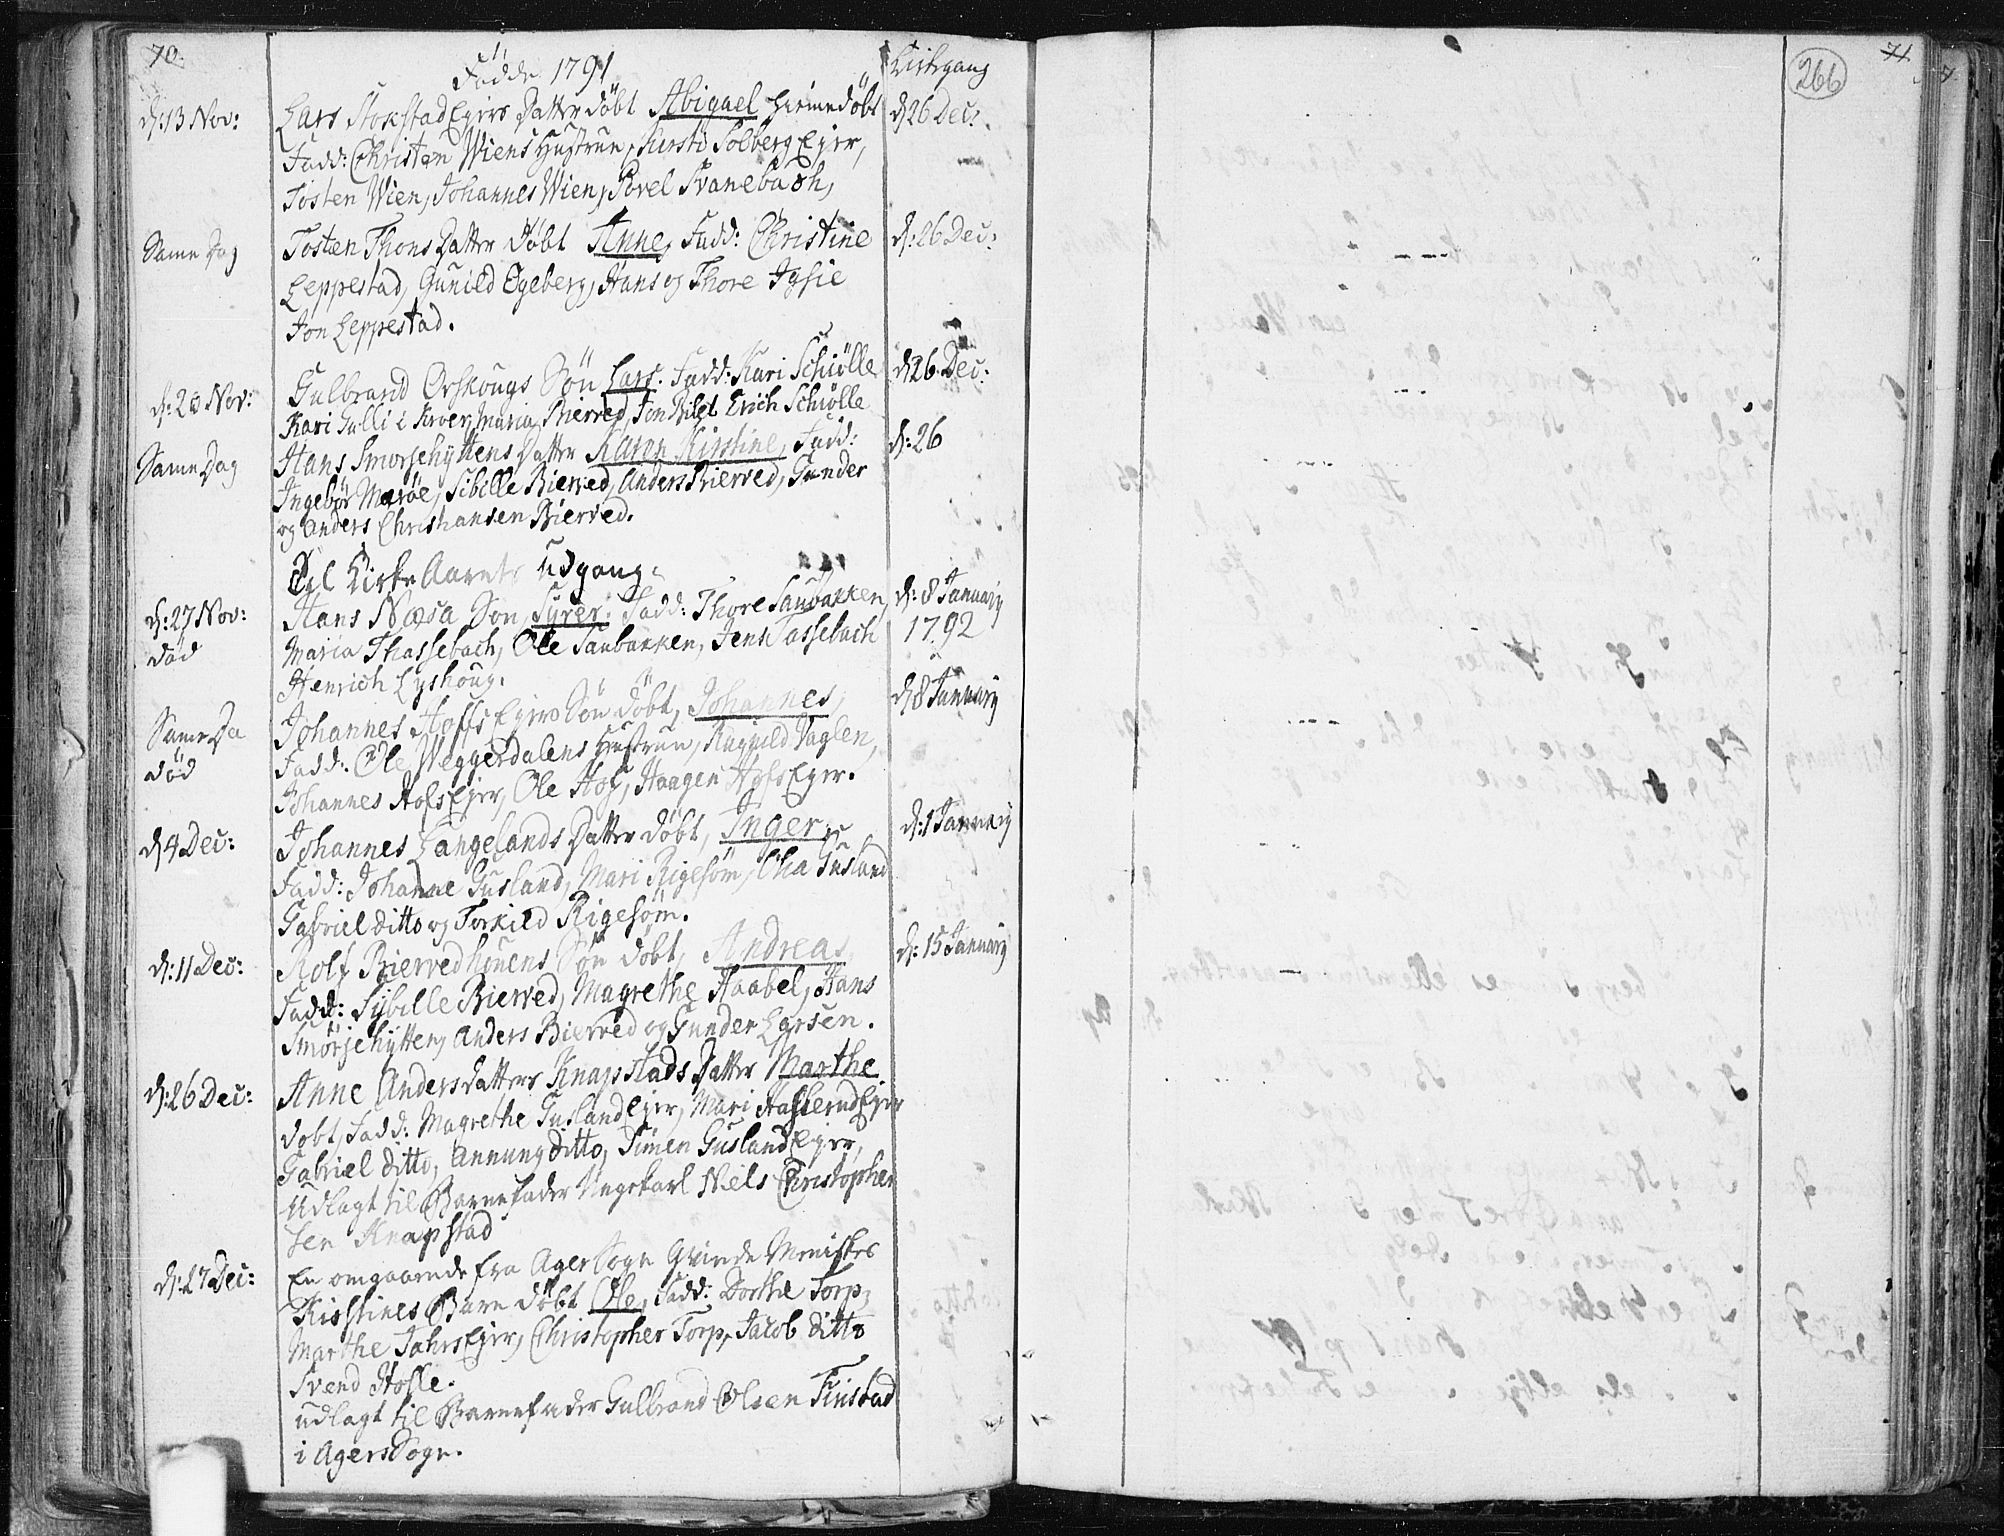 70.
Fødde 1791
Kirkgang
d: 13 Nov:
Lars StokstadEjers Datter døbt Abigael hiemedøbt
d 26 Dec:
Fadd: Christen Wiens Hustrue, Kirsti SolbergEjer,
Tosten Wien, Johannes Wien, Povel Svanebach,
Same Dag
Tosten Thons Datter døbt Anne, Fadd: Christine
d: 26 Dec:
Leppestad, Gunild Egeberg, Hans og Thore Igsie
Jon Leppestad.
d: 20 Nov:
Gulbrand Ørskougs Søn Lars. Fadd: Kari Schiølle
d 26 Dec:
Kari Gulli i Kroer, Maria Bierved, Jon Bilet Erich Schiølle
Same Dag
Hans Smørjehyttens Datter Karen Kirstine, Fadd:
d: 26
Ingebør Marøe, Sibille Bierved, Anders Bierved, Gunder
og Anders Christiansen Bierved.
Til Kirke Aarets Udgang.
d: 27 Nov:
død
Hans Næsa Søn, Syver; Fadd: Thore Saubakken,
d: 8 January
1792
Maria Thassebach, Ole Saubakken, Jens Tassebach
Henrich Lyshoug.
Same Da
død
Johannes HofsEjers Søn døbt, Johannes,
d 8 January
Fadd: Ole Weggerdalens Hustrue, Ragnild Daglen,
Johannes HofsEjer, Ole Hof, Haagen HofsEjer.
d 4 Dec:
Johannes Langelands Datter døbt, Inger,
d: 1 January
Fadd: Johanne Gusland, Mari Rigesøm, Olia Gusland
Gabriel ditto og Torkild Rigesøm.
d: 11 Dec:
Rolf Biervedhouens Søn døbt, Andreas
d: 15 January
Fadd: Sybille Bierved, Magrethe Haabel, Hans
Smørjehytten, Anders Bierved og Gunder Larsen.
d: 26 Dec:
Anne Andersdatters Knapstads Datter Marthe
døbt, Fadd: Magrethe GuslandEjer, Mari HasserudEjer
Gabriel ditto, Annung ditto, Simen GuslandEjer,
Udlagt til Barnefader Ungekarl Niels Christopher
sen Knapstad
d: 27 Dec:
En omgaaende fra Ager Sogn Qvinde Meniske
Kistines Barn døbt Ole, Fadd: Dorthe Torp,
Marthe JahrsEjer, Christopher Torp, Jacob ditto
Svend Holle.
udlagt til Barnefader Gulbrand Olsen Finstad
i Agers Sogn.
71
266